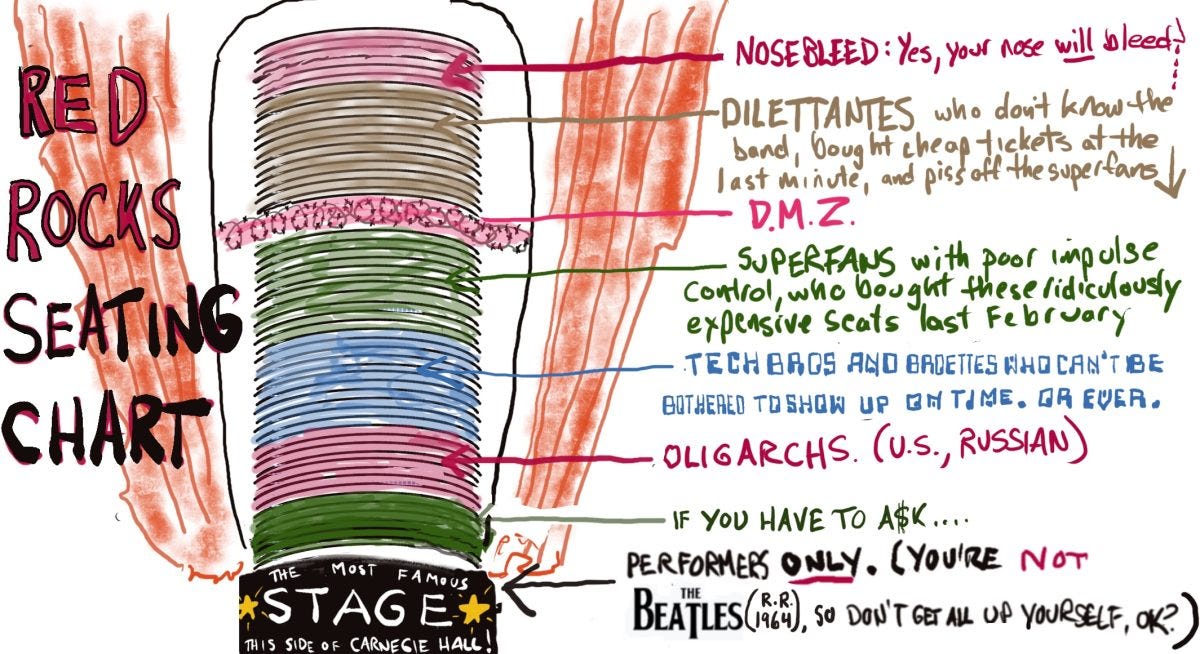 RED
ROCKS
SEATING
CHART
NOSEBLEED: Yes, your nose will bleed!
DILETTANTES who don't know the
band, bought cheap tickets at the
last minute, and piss off the superfans
D.M.Z.
SUPERFANS with poor impulse
control, who bought these ridiculously
expensive seats last February
TECH BROS AND BROETTES WHO CAN'T BE
BOTHERED TO SHOW UP ON TIME. OR EVER.
OLIGARCHS. (U.S., RUSSIAN)
IF YOU HAVE TO A$K....
PERFORMERS ONLY. (YOU'RE NOT
THE BEATLES (R.R. 1964), SO DON'T GET ALL UP YOURSELF, OK?)
THE MOST FAMOUS
STAGE
THIS SIDE OF CARNEGIE HALL!